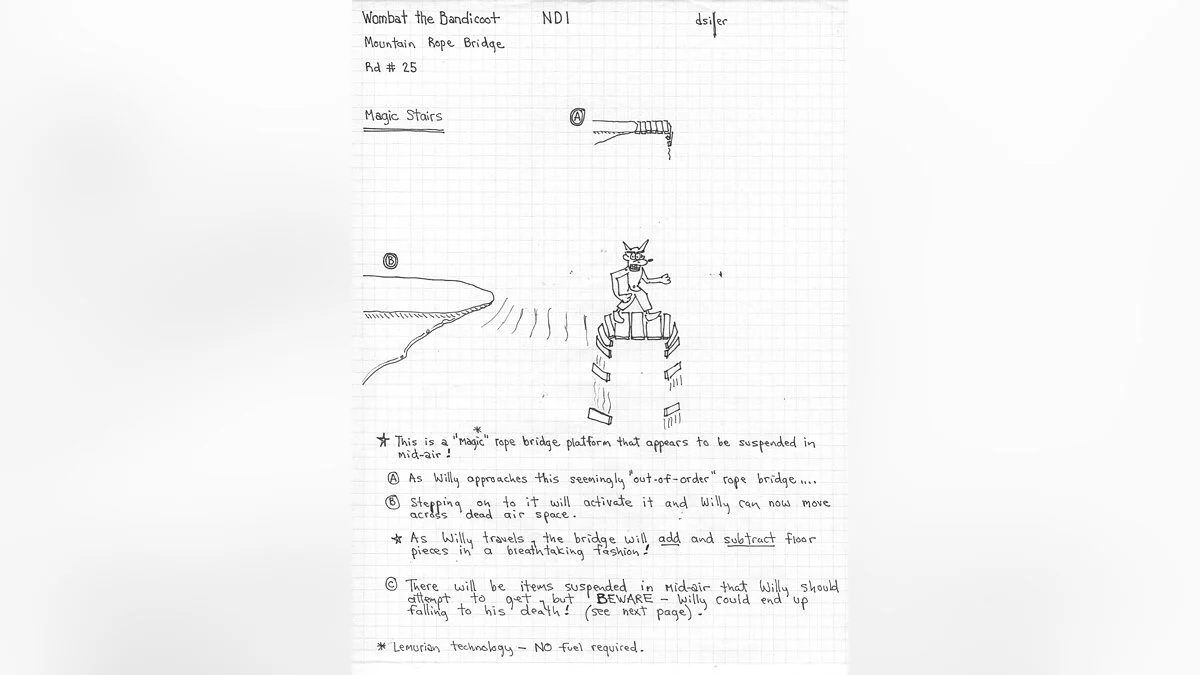 Wombat the Bandicoot NDI dsifer
Mountain Rope Bridge
Rd # 25
Magic Stairs
A
B
☆ This is a "Magic"* rope bridge platform that appears to be suspended in
mid-air!
Ⓐ As Willy approaches this seemingly "out-of-order" rope bridge....
Ⓑ Stepping on to it will activate it and Willy can now move
across dead air space.
☆ As Willy travels, the bridge will add and subtract floor
pieces in a breathtaking fashion!
Ⓒ There will be items suspended in mid-air that Willy should
attempt to get, but BEWARE - Willy could end up
falling to his death! (see next page).
* Lemurian technology - NO fuel required.